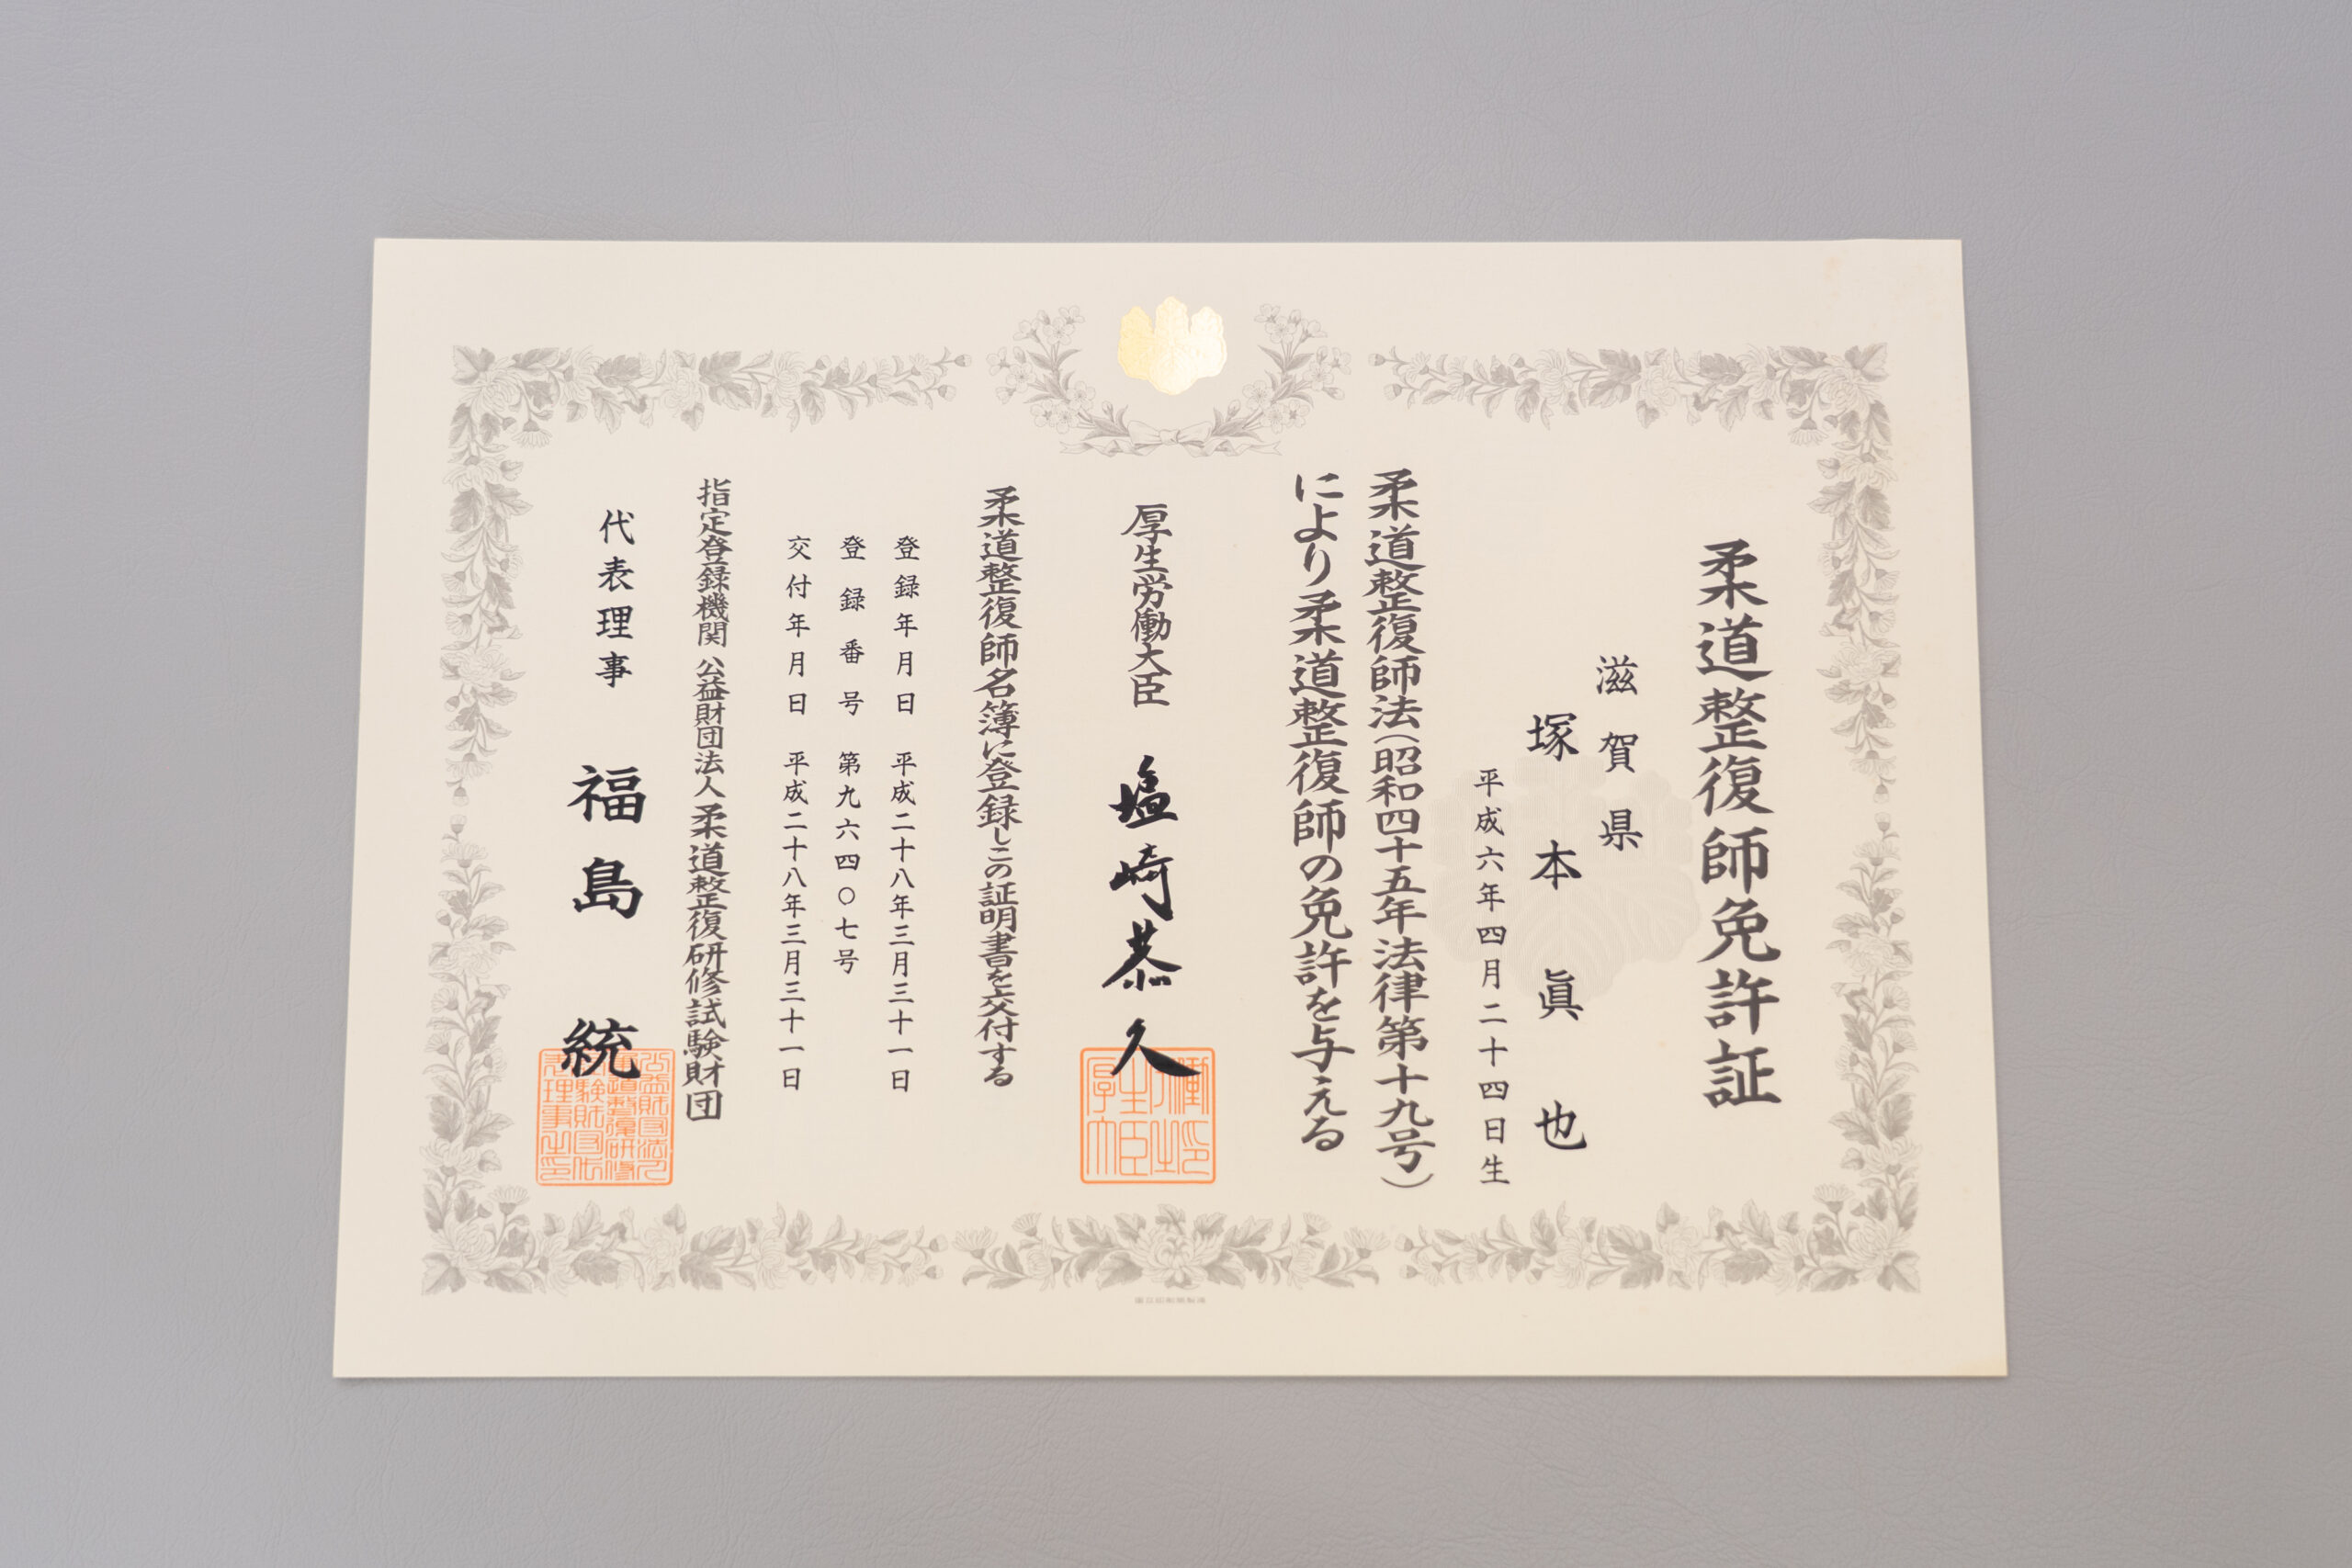 柔道整復師免許証
滋賀県
塚本眞也
平成六年四月二十四日生
柔道整復師法(昭和四十五年法律第十九号)
により柔道整復師の免許を与える
厚生労働大臣 塩崎恭久
柔道整復師名簿に登録しこの証明書を交付する
登録年月日 平成二十八年三月三十一日
登録番号 第九六四〇七号
交付年月日 平成二十八年三月三十一日
指定登録機関 公益財団法人 柔道整復研修試験財団
代表理事 福島統